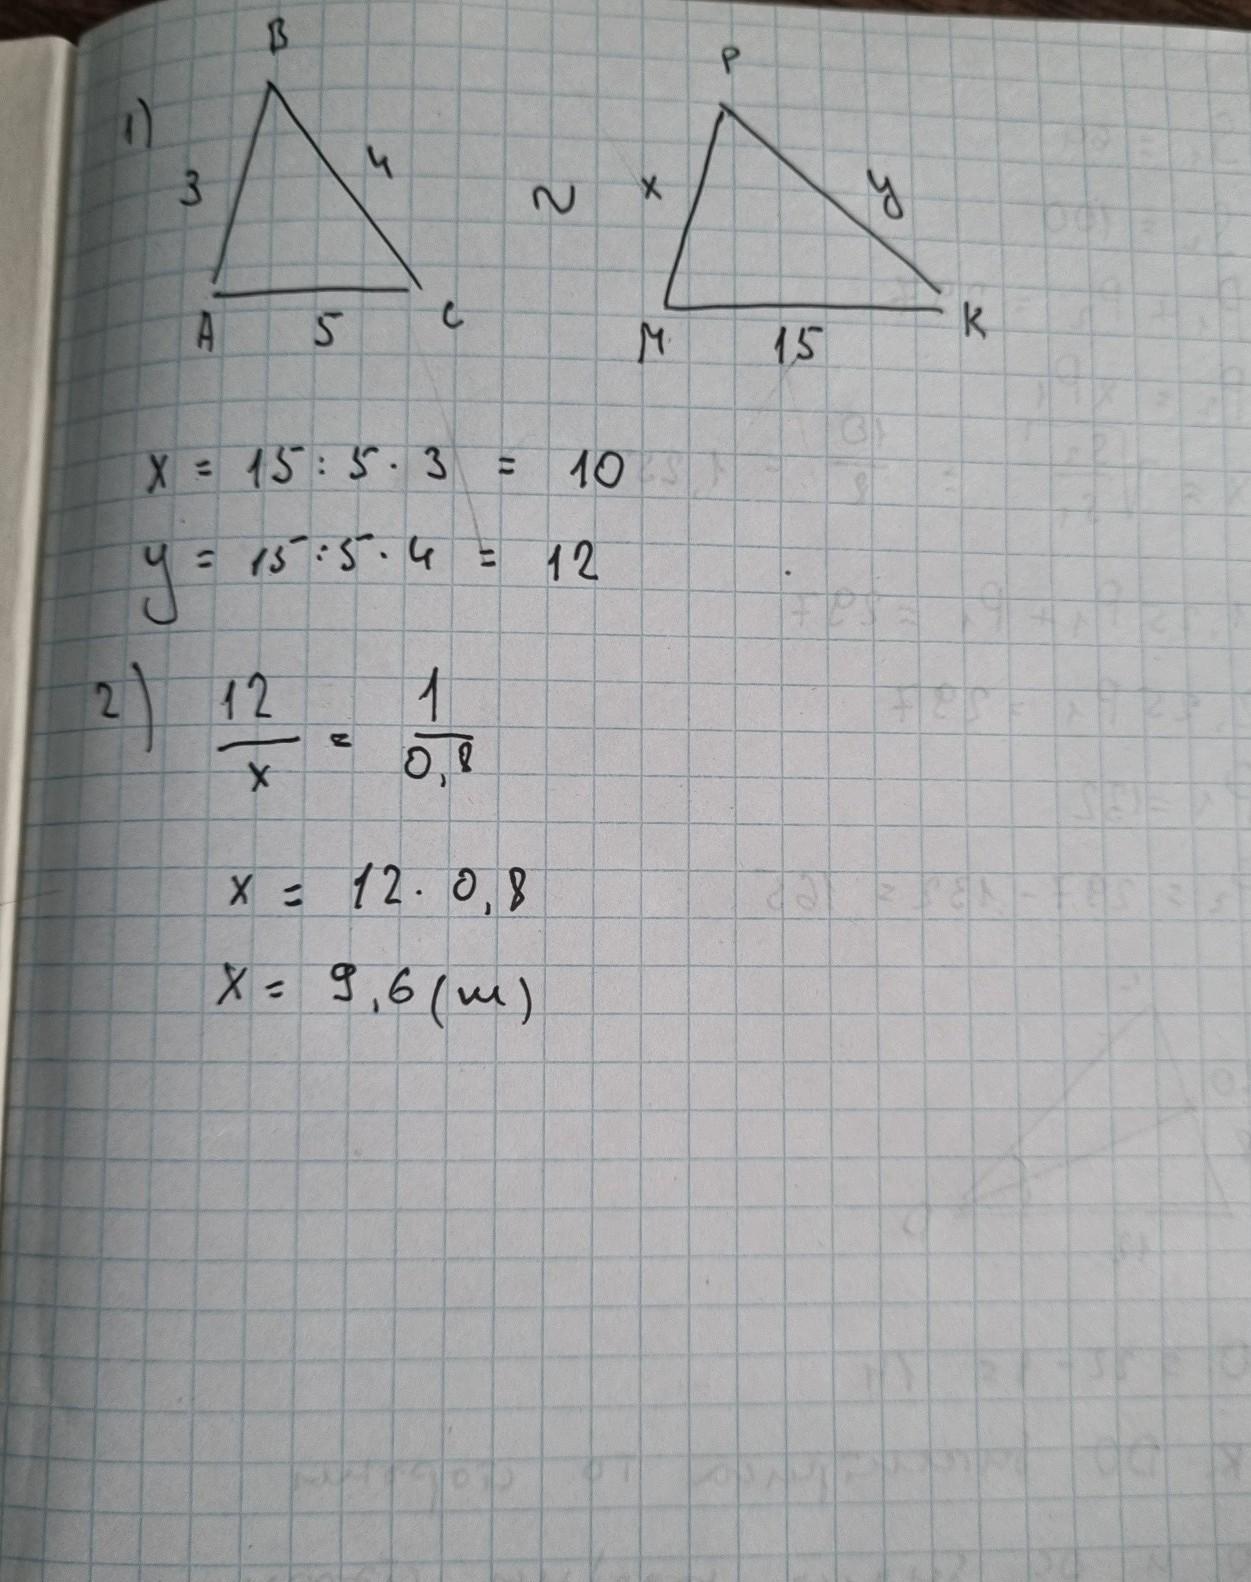 1)
B
3
4
A
5
C
~
P
x
y
M
15
K
x = 15 : 5 · 3 = 10
y = 15 : 5 · 4 = 12
2) 12/x = 1/0,8
x = 12 · 0,8
x = 9,6 (м)